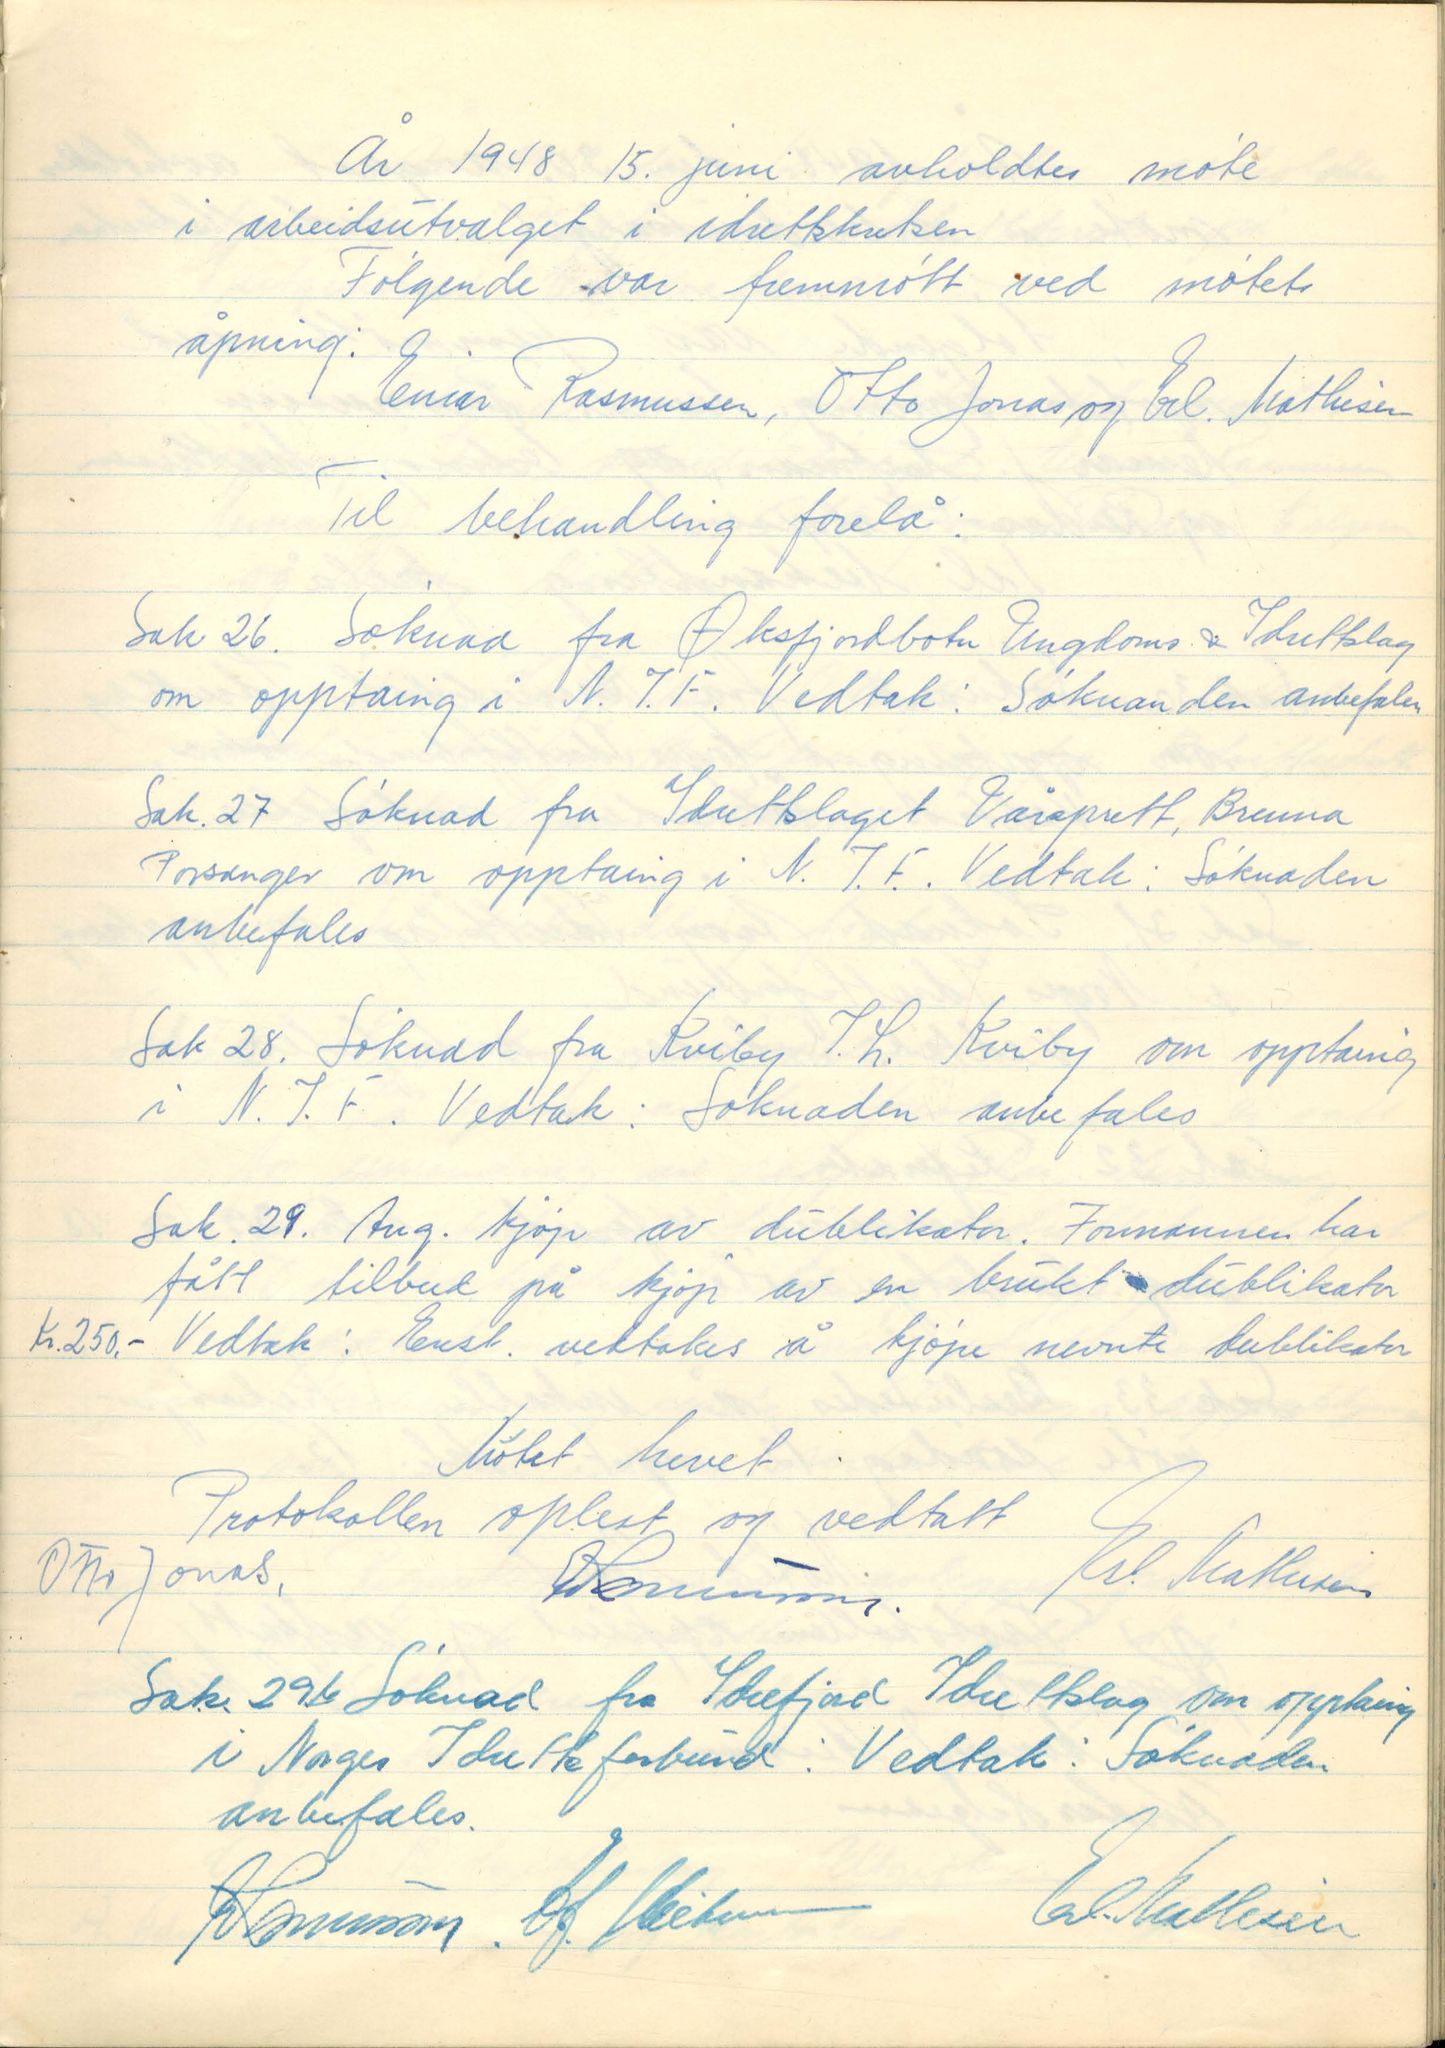 År 1948 15. juni avholdtes møte
i arbeidsutvalget i idrettskretsen
Følgende var fremmøtt ved møtets
åpning:
Einar Rasmussen, Otto Jonas og Erl. Mathisen
Til behandling forelå:
Sak 26. Søknad fra Øksfjordbotn Ungdoms & Idrettslag
om opptaing i N. I. F. Vedtak: Søknanden anbefales
Sak. 27 Søknad fra Idrettslaget Vårsprett, Brenna
Porsanger om opptaing i N. I. F. Vedtak: Søknaden
anbefales
Sak 28. Søknad fra Kviby I. L. Kviby om opptaing
i N. I. F. Vedtak: Søknaden anbefales
Sak. 29. Ang. kjøp av dublikator. Formannen har
fått tilbud på kjøp av en brukt dublikator
Kr. 250,- Vedtak: Enst. vedtakes å kjøpe nevnte dublikator
Møtet hevet.
Protokollen oplest og vedtatt
Otto Jonas. E Rasmussen. Erl. Mathisen
Sak. 29b Søknad fra Idrettslag om opptaing
i Norges Idrettsforbund: Vedtak: Søknaden
anbefales.
E Rasmussen. Erl. Mathisen